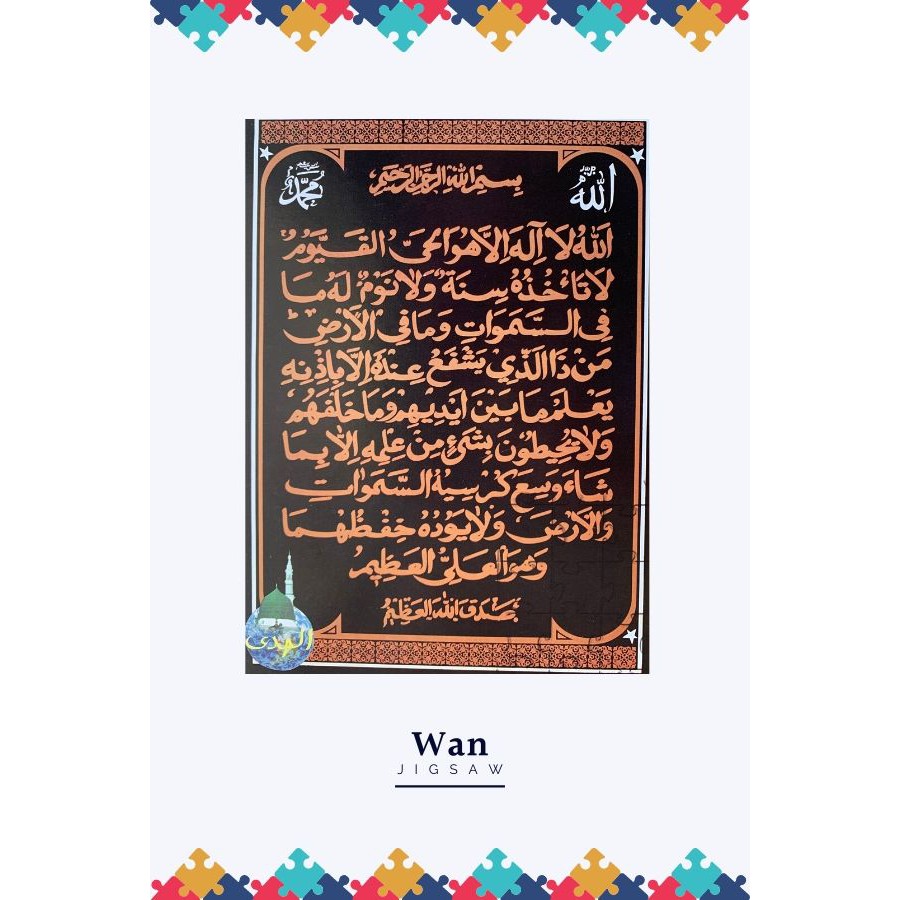 الله
محمد
بسم الله الرحمن الرحيم
الله لا اله الا هو الحي القيوم
لا تأخذه سنة ولا نوم له ما
في السموات وما في الارض
من ذا الذي يشفع عنده الا باذنه
يعلم ما بين ايديهم وما خلفهم
ولا يحيطون بشئ من علمه الا بما
شاء وسع كرسيه السموات
والارض ولا يؤده حفظهما
وهو العلي العظيم
صدق الله العظيم
الهدى
Wan
JIGSAW